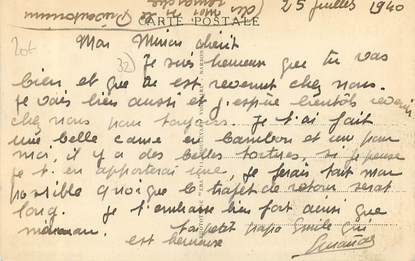 25 juillet 1940
CARTE POSTALE
20f
Mon Minou chérit
32
Je suis heureux que tu vas
bien et que de est revenut chez nous.
Je vais bien aussi et j'espère bientôts revenir
chez nous pour toujours. Je t'ai fait
une belle canne en bambou et une pour
moi, il y a des belles tortues, si je peux
je t'en apporterai une, je ferais tout mon
possible quoique le trajet de retour serat
long. Je t'embrasse bien fort ainsi que
maman. Ton petit papa Emile qui
est heureux